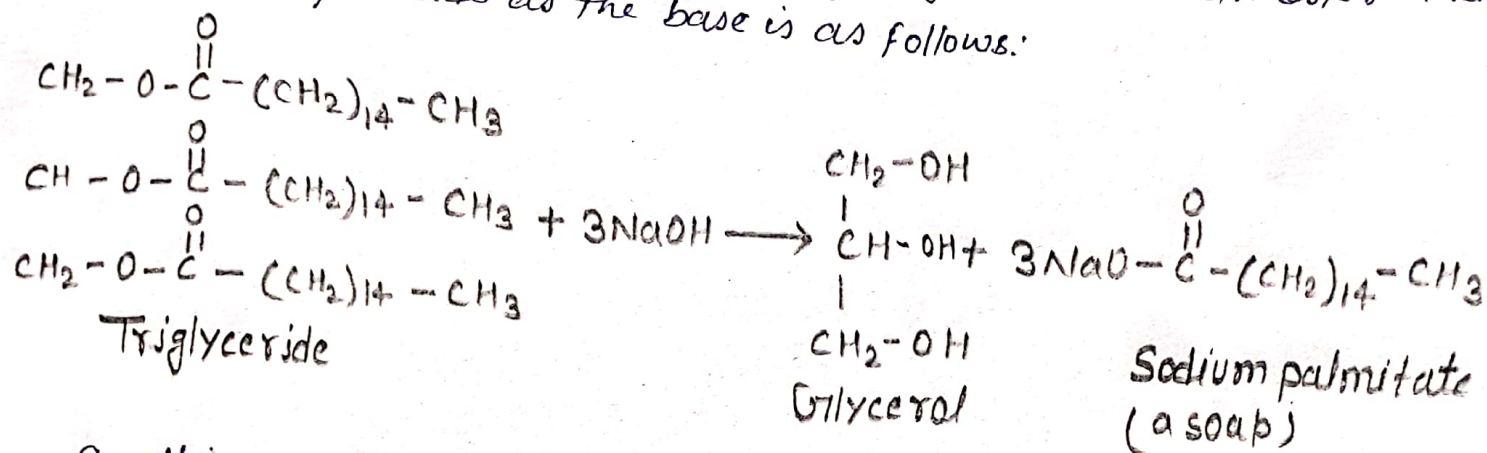 as the base is as follows:
O
||
CH₂-O-C-(CH₂)₁₄-CH₃
O
||
CH-O-C-(CH₂)14-CH₃ + 3NaOH ⟶ CH-OH + 3NaO-C-(CH₂)₁₄-CH₃
CH₂-OH
|
O
||
O
||
CH₂-O-C-(CH₂)14-CH₃
|
CH₂-OH
Triglyceride
Glycerol
Sodium palmitate
(a soap)